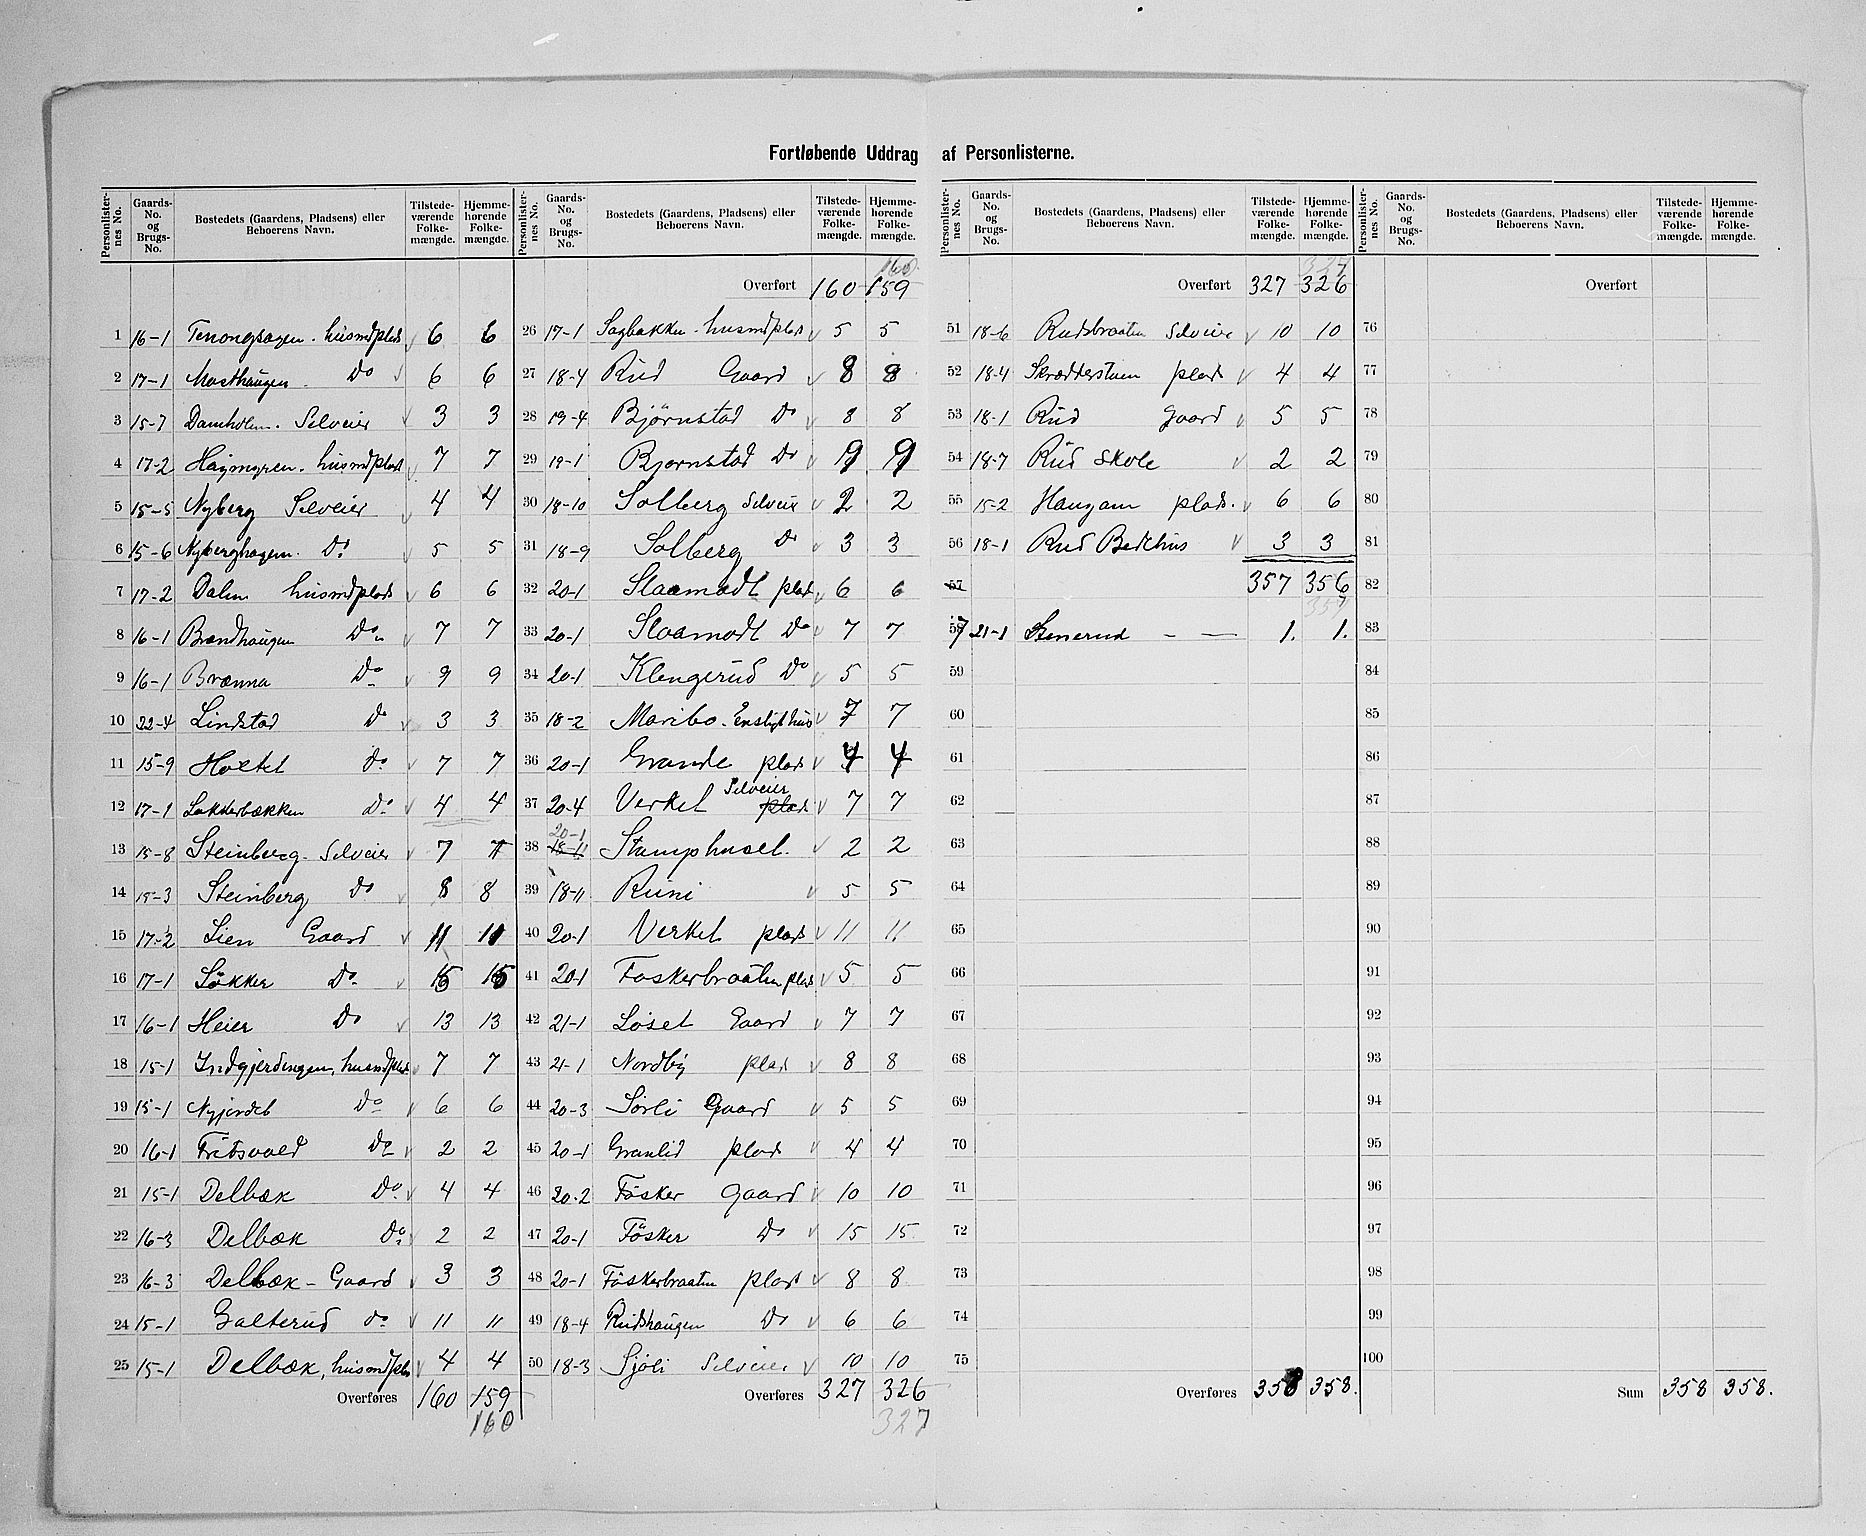 Fortløbende Uddrag af Personlisterne.
Personlister-nes No. Gaards-No. og Brugs-No. Bostedets (Gaardens, Pladsens) eller Beboerens Navn. Tilstede-værende Folke-mængde. Hjemme-hørende Folke-mængde.
1 16-1 husmdplads 6 6
2 17-1 Masthaugen Do 6 6
3 15-7 Damholm. Selveier 3 3
4 17-2 husmdplads 7 7
5 15-5 Nyberg Selveier 4 4
6 15-6 Nyberghagen. Do 5 5
7 17-2 Dalen husmdplads 6 6
8 16-1 Brændhaugen Do 7 7
9 16-1 Brænna Do 9 9
10 22-4 Lindstad Do 3 3
11 15-9 Hoelet Do 7 7
12 17-1 Løkkerbækken Do 4 4
13 15-8 Steinberg. Selveier 7 7
14 15-3 Steinberg Do 8 8
15 17-2 Lien Gaard 11 11
16 17-1 Løkker Do 15 15
17 16-1 Heier Do 13 13
18 15-1 Indgjerdingen, husmdplads 7 7
19 15-1 Nyjordet Do 6 6
20 16-1 Fritsvold Do 2 2
21 15-1 Delbæk Do 4 4
22 16-3 Delbæk Do 2 2
23 16-3 Delbæk - Gaard 3 3
24 15-1 Galterud do 11 11
25 15-1 Delbæk, husmdpls 4 4
Overføres 160 159
160
Personlister-nes No. Gaards-No. og Brugs-No. Bostedets (Gaardens, Pladsens) eller Beboerens Navn. Tilstede-værende Folke-mængde. Hjemme-hørende Folke-mængde.
160
Overført 160 159
26 17-1 Sagbakken - husmdplads 5 5
27 18-4 Rud Gaard 8 8
28 19-4 Bjørnstad Do 8 8
29 19-1 Bjørnstad Do 9 9
30 18-10 Solberg Selveier 2 2
31 18-9 Solberg Do 3 3
32 20-1 Slaamodt plads 6 6
33 20-1 Slaamodt Do 7 7
34 20-1 Klengerud Do 5 5
35 18-2 Maribo. Ensligt hus 7 7
36 20-1 Grande plads 4 4
37 20-4 Verket Selveier plads 7 7
20-1
38 18-11 Stamphuset. 2 2
39 18-11 Runi 5 5
40 20-1 Verket plads 11 11
41 20-1 Foskerbraaten plads 5 5
42 21-1 Løset Gaard 7 7
43 21-1 Nordby plads 8 8
44 20-3 Sørli Gaard 5 5
45 20-1 Granlid plads 4 4
46 20-2 Føsker Gaard 10 10
47 20-1 Føsker Do 15 15
48 20-1 Føskerbraaten plads 8 8
49 18-4 Rudshaugen Do 6 6
50 18-3 Sjøli Selveier 10 10
Overføres 327 326
327
Personlister-nes No. Gaards-No. og Brugs-No. Bostedets (Gaardens, Pladsens) eller Beboerens Navn. Tilstede-værende Folke-mængde. Hjemme-hørende Folke-mængde.
327
Overført 327 326
51 18-6 Rudsbraaten Selveier 10 10
52 18-4 Skrædderstuen plads 4 4
53 18-1 Rud Gaard 5 5
54 18-7 Rud Skole 2 2
55 15-2 plads. 6 6
56 18-1 Rud Bedehus 3 3
57 357 356
357
587 21-1 Stenerud - — 1. 1.
59
60
61
62
63
64
65
66
67
68
69
70
71
72
73
74
75
Overføres 358 358.
Personlister-nes No. Gaards-No. og Brugs-No. Bostedets (Gaardens, Pladsens) eller Beboerens Navn. Tilstede-værende Folke-mængde. Hjemme-hørende Folke-mængde.
Overført
76
77
78
79
80
81
82
83
84
85
86
87
88
89
90
91
92
93
94
95
96
97
98
99
100
Sum 358 358.